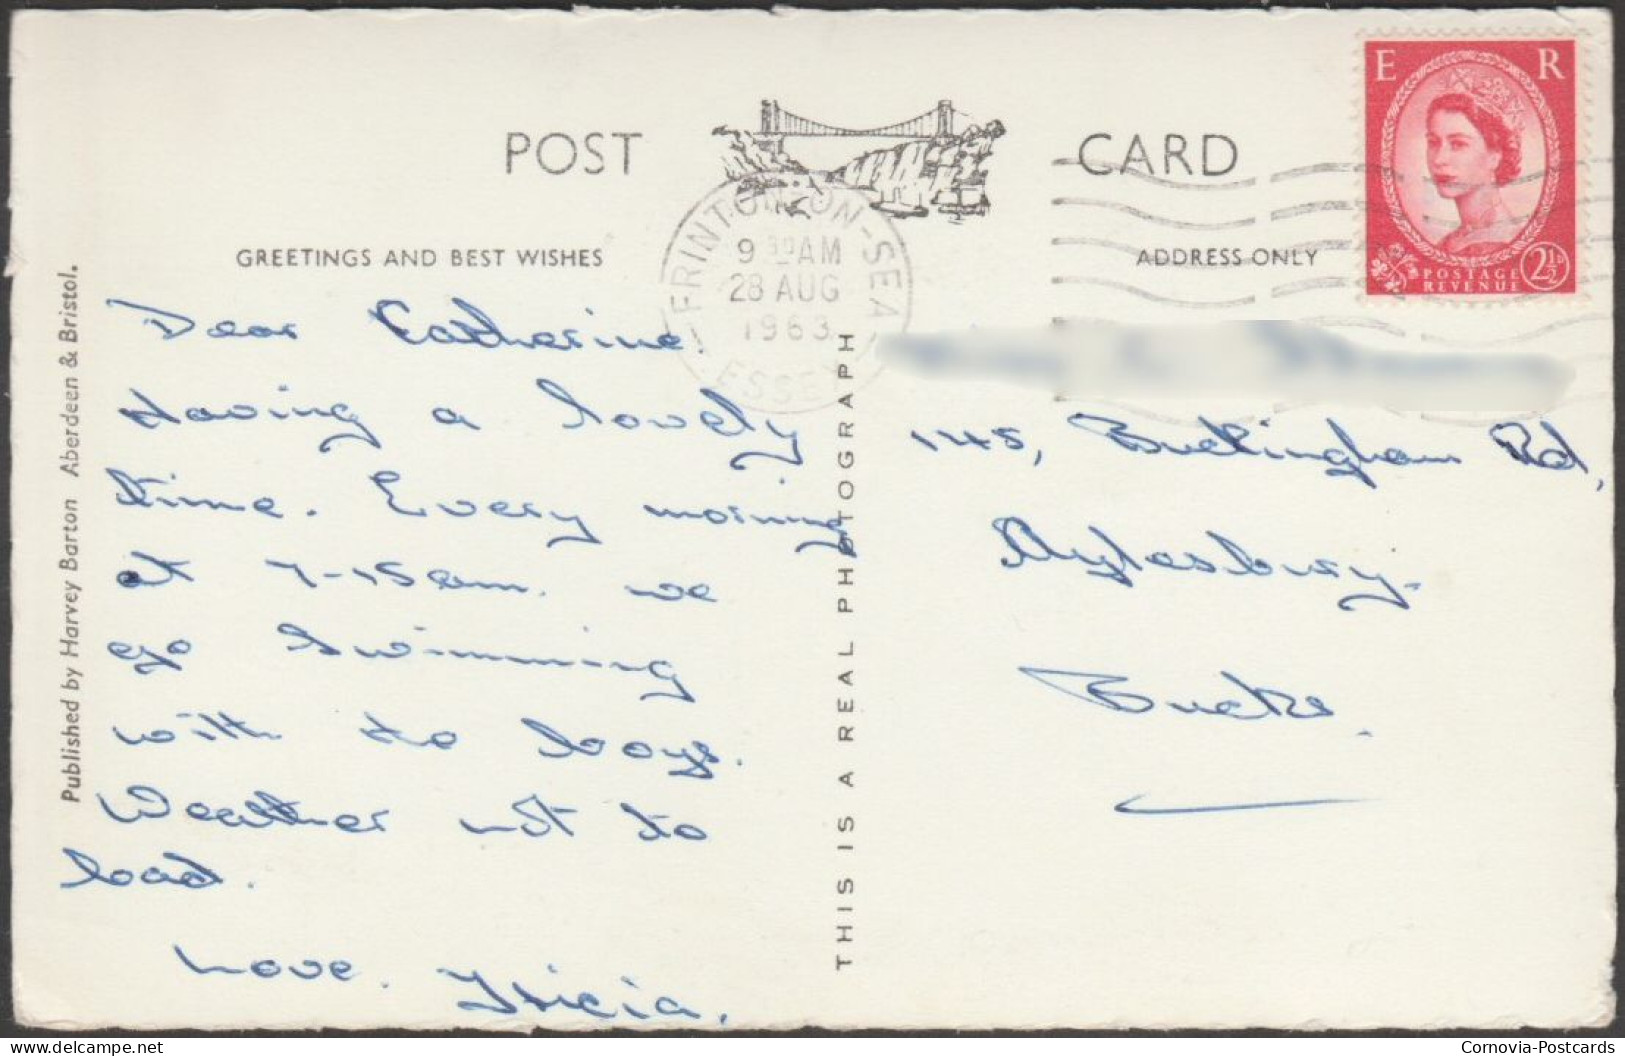 POST CARD
E R
POSTAGE
REVENUE
2½D
FRINTON-ON-SEA
ESSEX
AM
28 AUG
1963
GREETINGS AND BEST WISHES
ADDRESS ONLY
Published by Harvey Barton Aberdeen & Bristol.
Dear Catherine.
Having a lovely
time. Every morning
at 7-15am. we
go swimming
with to boys.
Weather not to
bad.
Love.
THIS IS A REAL PHOTOGRAPH
145, Buckingham Rd,
Aylesbury.
Bucks.
delcampe.net
Cornovia-Postcards